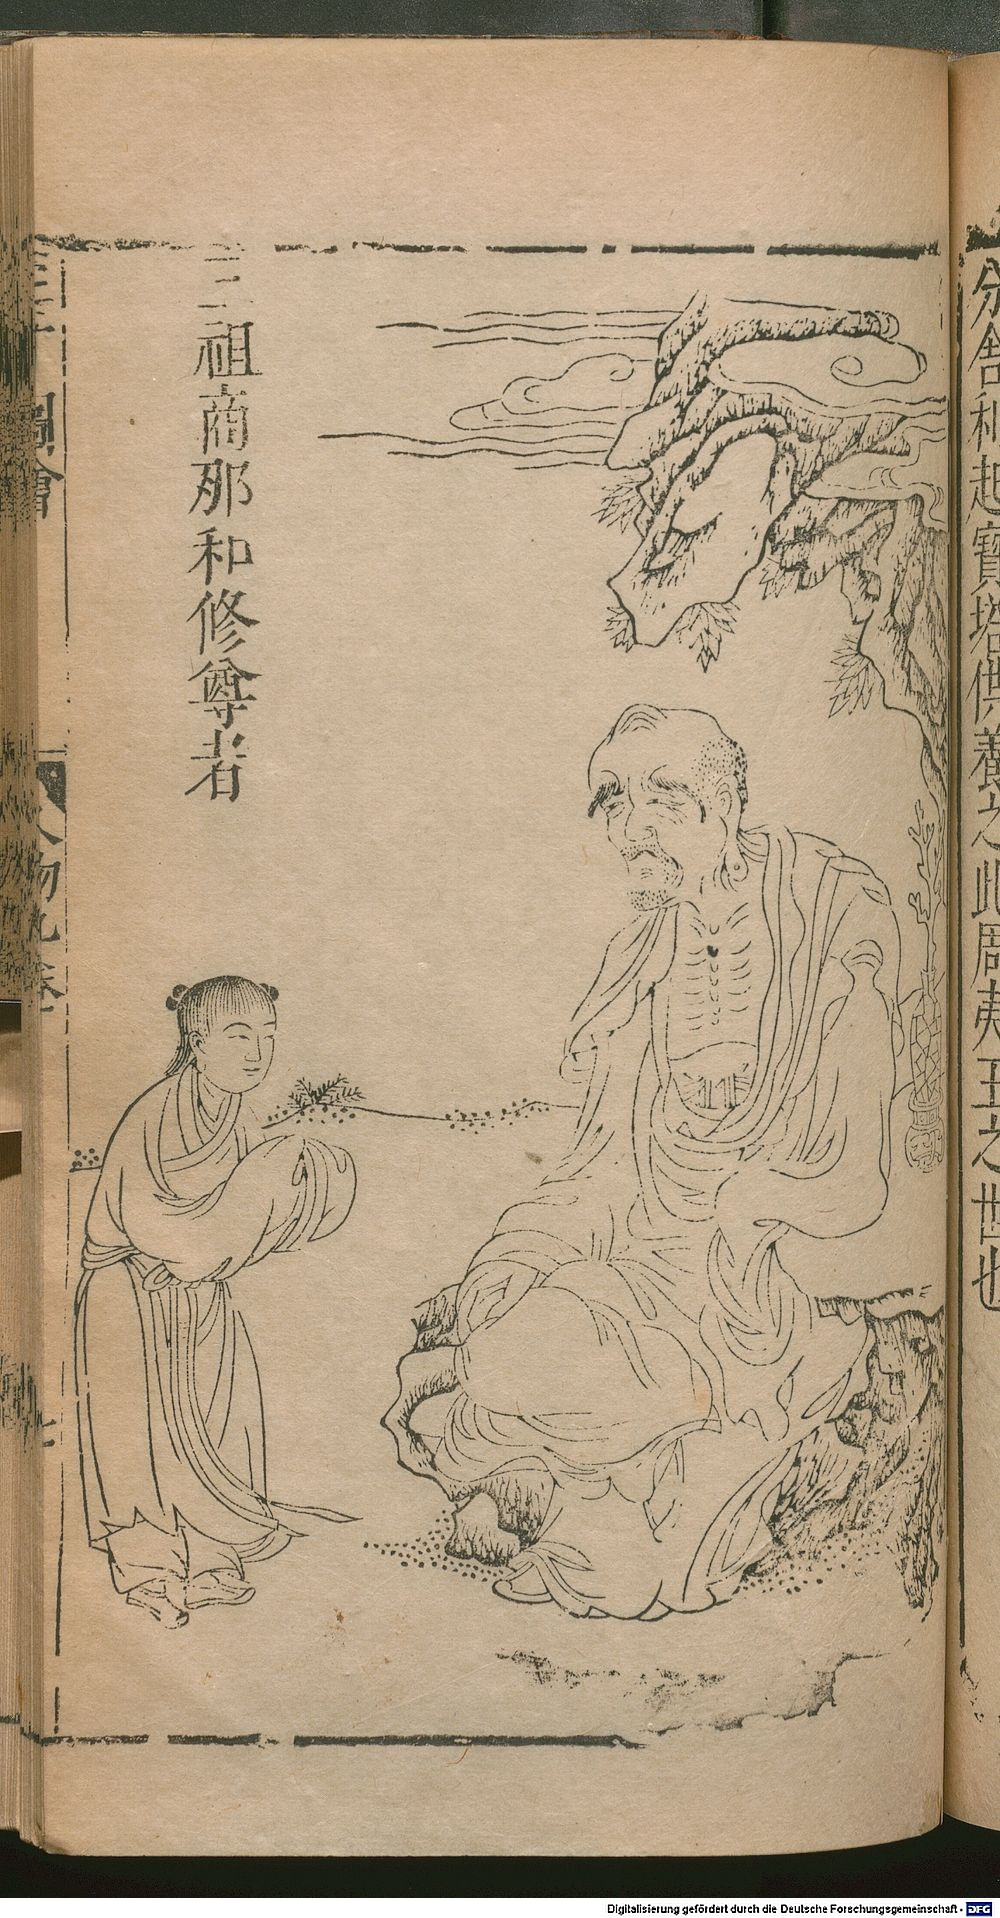 分舍利起寶塔供養之此周夷王之世也
三祖商那和修尊者
圖會
人物九卷
Digitalisierung gefördert durch die Deutsche Forschungsgemeinschaft - DFG